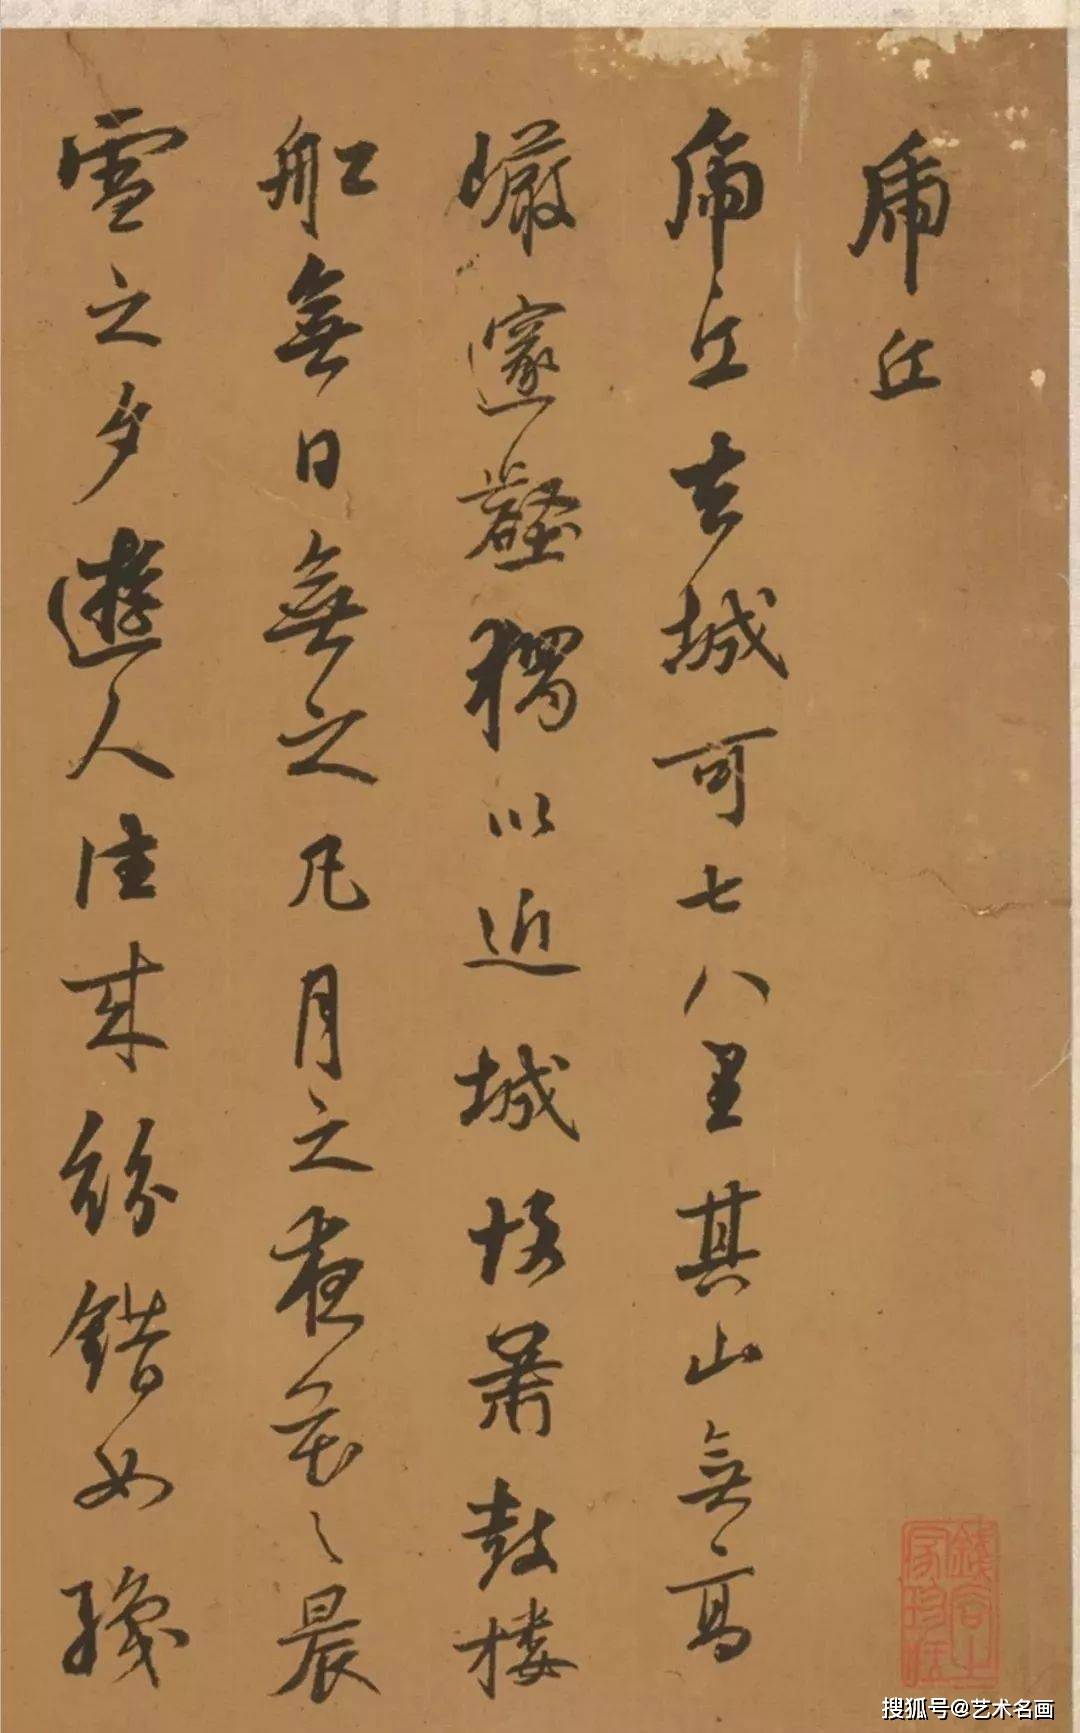 虎丘
虎丘去城可七八里其山無高
巖邃壑獨以近城故簫鼓樓
船無日無之凡月之夜花之晨
雪之夕遊人往來紛錯如織
搜狐号@艺术名画